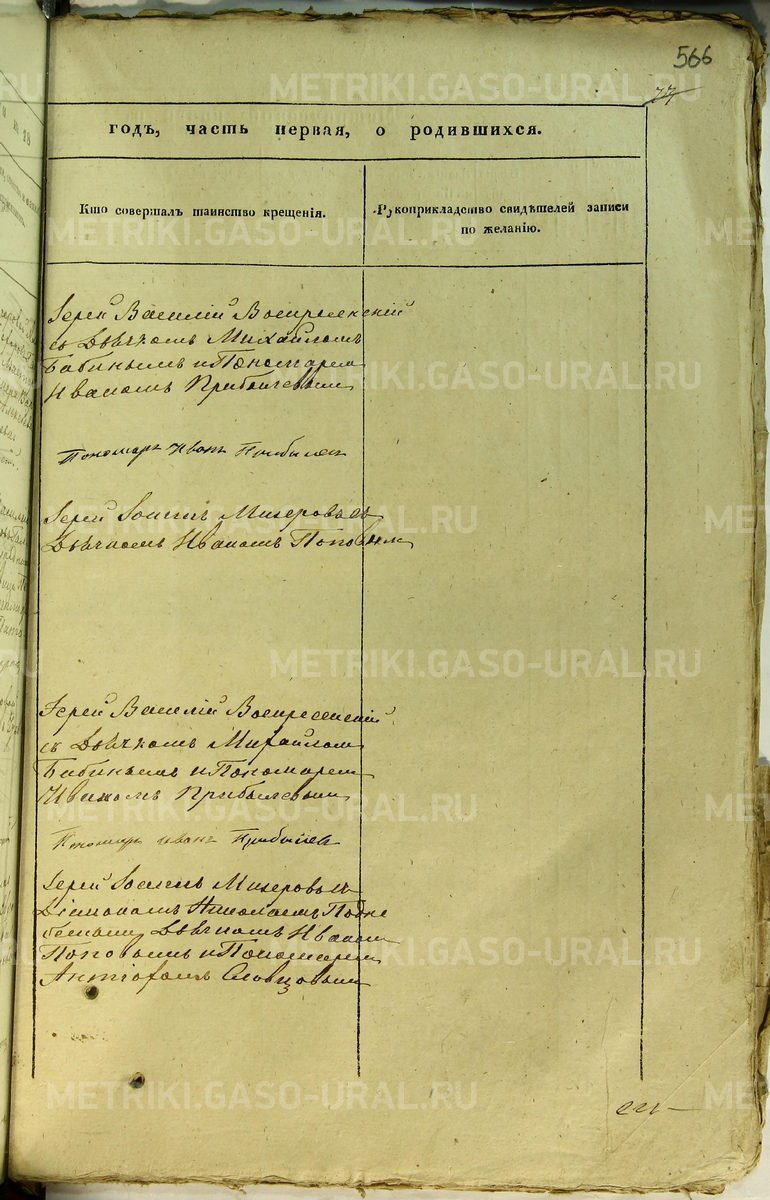 566
77
годъ, часть первая, о родившихся.
Кто совершалъ таинство крещенія.
Рукоприкладство свидѣтелей записи
по желанію.
Іерей Василій Воскресенскій
съ Дьячкомъ Михайломъ
Бабинымъ и Пономарем
Иваномъ Прибылевым
Пономарь Иванъ Прибылев
Іерей Іосифъ Мизеровъ съ
Дьячкомъ Иваномъ Поповым
Іерей Василій Воскресенскій
съ Дьячкомъ Михайлом
Бабинымъ и Пономарем
Иваномъ Прибылевым
Пономарь Иванъ Прибылев
Іерей Іосифъ Мизеровъ съ
Діакономъ Николаемъ
Дьячкомъ Иваном
Поповымъ и Пономарем
Словцовым
METRIKI.GASO-URAL.RU